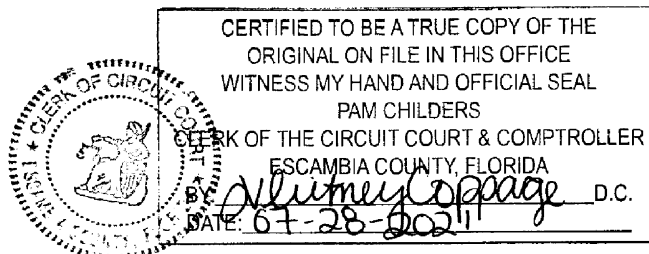 CERTIFIED TO BE A TRUE COPY OF THE
ORIGINAL ON FILE IN THIS OFFICE
WITNESS MY HAND AND OFFICIAL SEAL
PAM CHILDERS
CLERK OF THE CIRCUIT COURT & COMPTROLLER
ESCAMBIA COUNTY, FLORIDA
BY: Whitney Coppage D.C.
DATE: 07-28-2021
CLERK OF CIRCUIT COURT